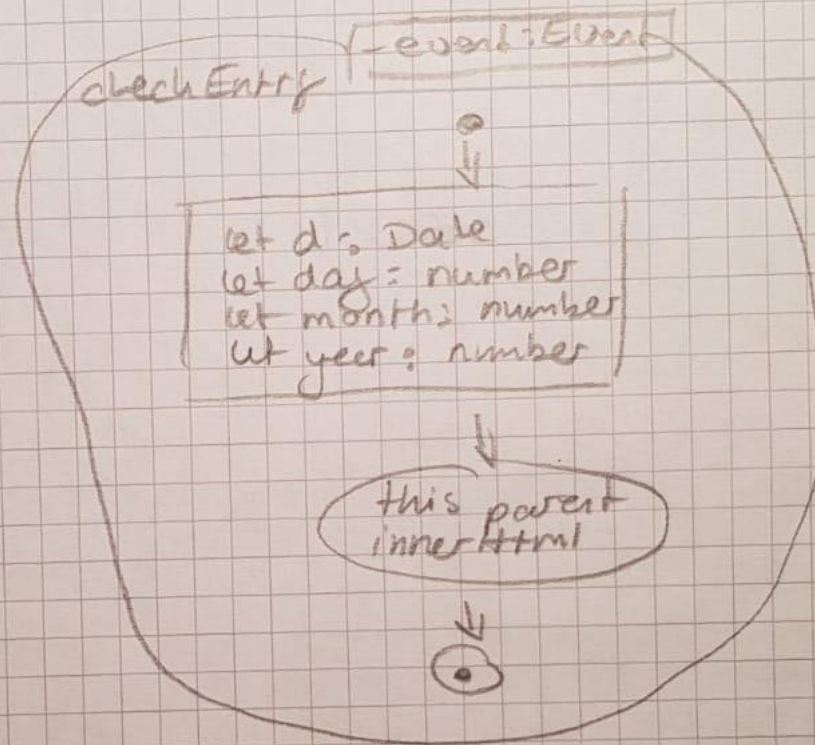 checkEntry
-event:Event
let d: Date
let day: number
let month: number
let year: number
this parent
innerHtml